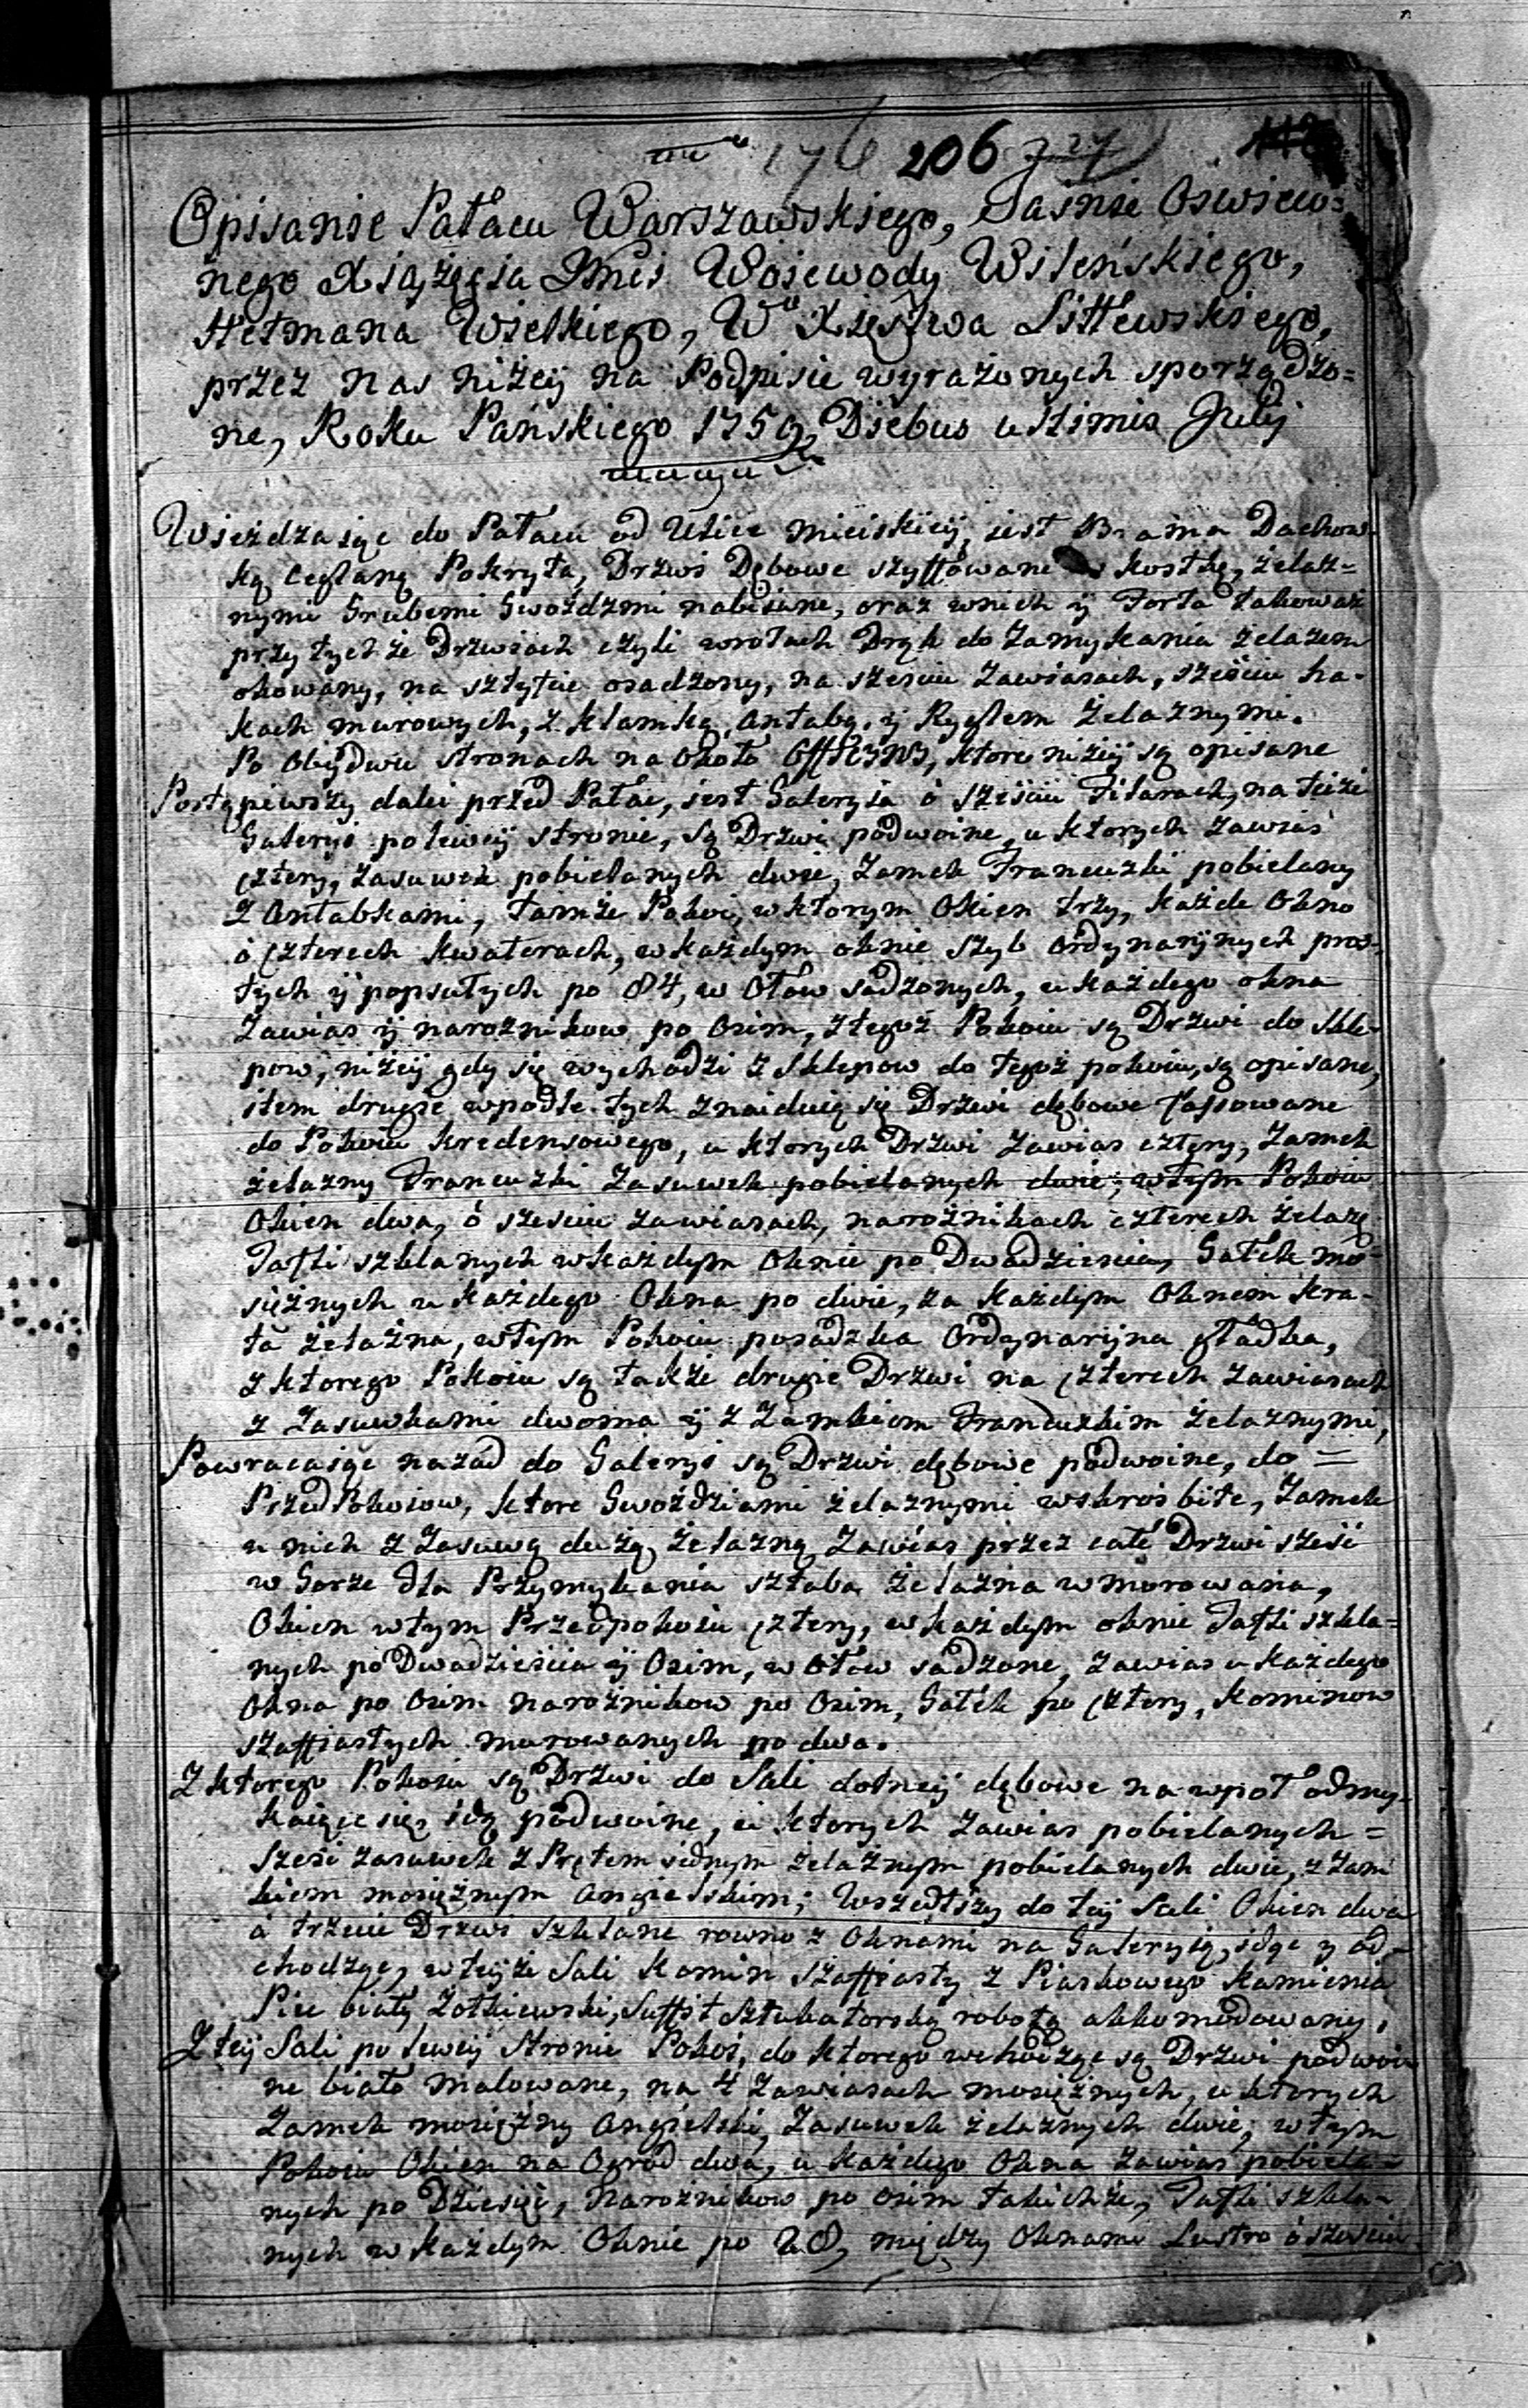 176 206 727
Opisanie Pałacu Warszawskiego, Jasnie Oswieco=
nego Xiążęcia Jmci Wojewody Wileńskiego,
Hetmana Wielkiego, Wº Xięstwa Littewskiego,
przez nas niżey na Podpisie wyrażonych sporządzo=
ne, Roku Pańskiego 1759, Diebus ultimis Julij
Wjeżdzając do Pałacu od Ulice mieiskiey, jest Brama Dachow-
ką Ceglaną Pokryta, Drzwi Dębowe szyffowane w kostkę, żelaz=
nymi Grubemi Gwoźdzmi nabijane, oraz wnich ÿ Forta takoważ
przy tychże Drzwiach czyli wrotach Drąk do Zamykania żelazem
okowany, na sztyfcie osadzony, na sześciu Zawiasach, sześciu ha-
kach murowych, z klamką, antabą, ÿ Ryglem Żelaznymi.
Po Obydwu stronach na Około Officyny, ktore niżey są opisane
Postąpiwszy daley przed Pałac, jest Galeryja ó sześciu Filarach, na teiże
Galeryi po lewey stronie, są Drzwi podwoine, u ktorych zawias
cztery, Zasuwek pobielanych dwie, Zamek Francuzki pobielany
z Antabkami, tamże Pokoi, w ktorym Okien trzy, każde Okno
ó czterech kwaterach, w każdym oknie szyb ordynaryjnych pros-
tych ÿ popsutych po 84, w Ołow sadzonych, u każdego okna
Zawias ÿ narożnikow po Osim, z tegoż Pokoiu są Drzwi do Skle-
pow, niżey gdy się wychodzi z Sklepow do tegoż pokoiu, są opisane,
item drugie wpodle tych znaiduią się Drzwi dębowe fassowane
do Pokoiu kredensowego, u ktorych Drzwi Zawias cztery, Zamek
żelazny Francuzki Zasuwek pobielanych dwie; w tym Pokoiu
Okien dwa, ó sześciu zawiasach, narożnikach czterech żelazn.
Tafli szklanych w każdym Oknie po Dwadzieścia, Gałek mo-
siężnych u każdego Okna po dwie, za każdym Oknem kra-
ta żelazna, w tym Pokoiu posadzka Ordynaryjna gładka,
z ktorego Pokoiu są także drugie Drzwi na czterech zawiasach
z Zasuwkami dwoma ÿ z Zamkiem Francuzkim żelaznymi,
Powracaiąc nazad do Galeryi są Drzwi dębowe podwoine, do =
PrzedPokoiow, ktore Gwoździami żelaznymi wskroś bite, Zamek
u nich z Zasuwą dużą żelazną Zawias przez całe Drzwi sześć
w Gorze dla Przymykania sztaba żelazna wmorowana,
Okien w tym Przedpokoiu cztery, w każdym oknie Tafli szkla=
nych po Dwadzieścia ÿ Osim, w Ołow sadzone, zawias u każdego
Okna po osim narożnikow po Osim, Gałek po cztery, kominow
szaffiastych murowanych po dwa.
Z ktorego Pokoiu są Drzwi do Sali dolney dębowe na wpoł odmy-
kaiące się, są podwoine, u ktorych zawias pobielanych =
sześć zasuwek z Prętem jednym żelaznym pobielanych dwie, z Zam
kiem mosiężnym Angielskim; Wszedłszy do tey Sali Okien dwa
á trzecie Drzwi szklane rowno z Oknami na Galeryią, idąc y od-
chodząc, w teyże Sali komin szaffiasty z Piaskowego kamienia
Piec biały Żołkiewski, Suffit Sztukatorską robotą akkomodowany,
Z tey Sali po lewey stronie Pokoi, do ktorego wchodząc są Drzwi podwoi
ne biało malowane, na 4 zawiasach mosiężnych, u ktorych
Zamek mosiężny Angielski, Zasuwek żelaznych dwie; w tym
Pokoiu Okien na Ogrod dwa, u każdego Okna zawias pobiela-
nych po Dziesięć, Narożnikow po osim takichże, Tafli szkla-
nych w każdym Oknie po 28, między Oknami Lustro ó sześciu